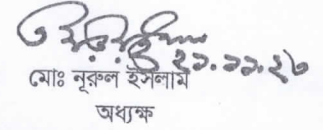 ২১.১১.২৩
মোঃ নূরুল ইসলাম
অধ্যক্ষ